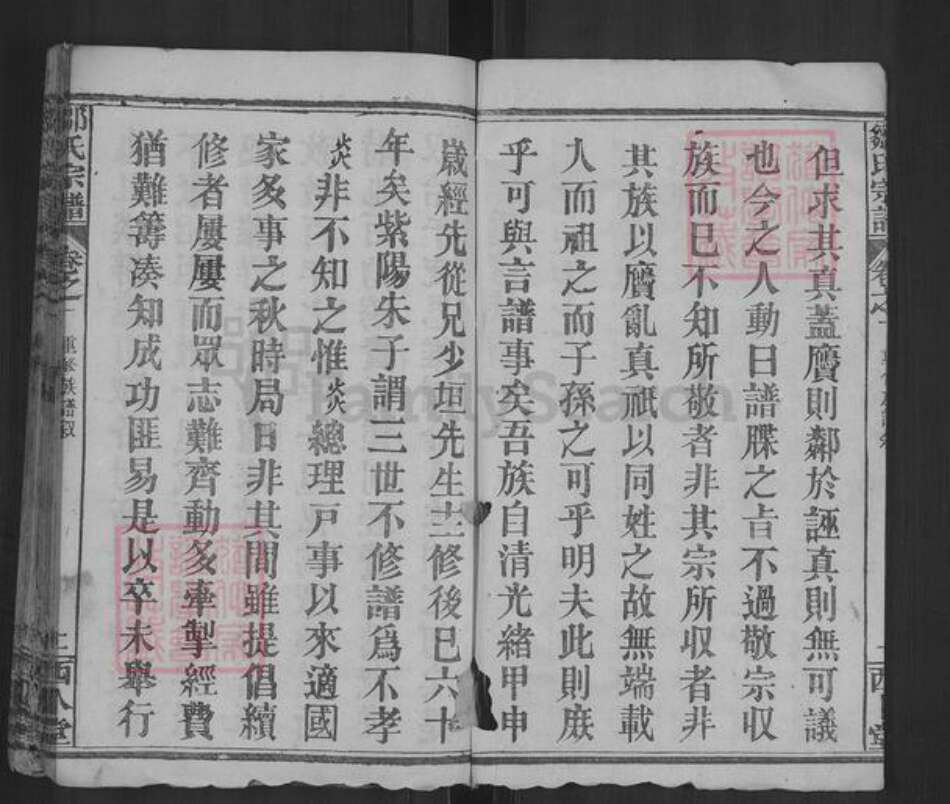 但求其真蓋贗則鄰於誣真則無可議
也今之人動曰譜牒之旨不過敬宗収
族而已不知所敬者非其宗所収者非
其族以贗亂真祇以同姓之故無端載
人而祖之而子孫之可乎明夫此則庶
乎可與言譜事矣吾族自清光緒甲申
歲經先從兄少垣先生主修後已六十
年矣紫陽朱子謂三世不修譜爲不孝
炎非不知之惟炎總理戸事以來適國
家多事之秋時局日非其間雖提倡續
修者屢屢而眾志難齊動多牽掣經費
猶難籌凑知成功匪易是以卒未舉行
鄒氏宗譜
卷之一
重修族譜叙